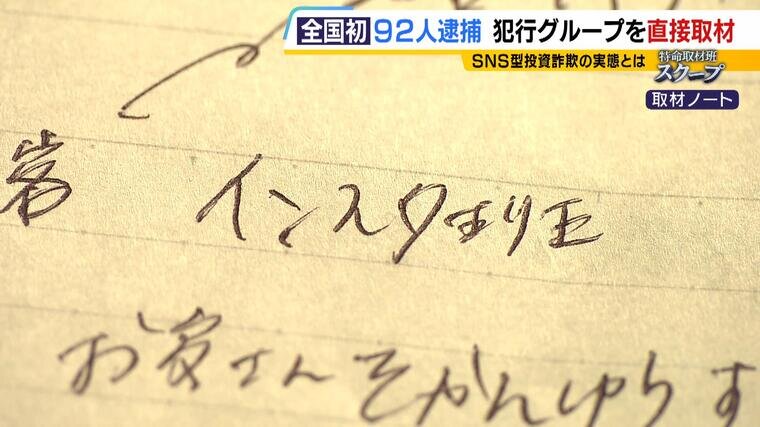 全国初 92人逮捕 犯行グループを直接取材
SNS型投資詐欺の実態とは
特命取材班
スクープ
取材ノート
インスタ
お客さんをかんゆうす